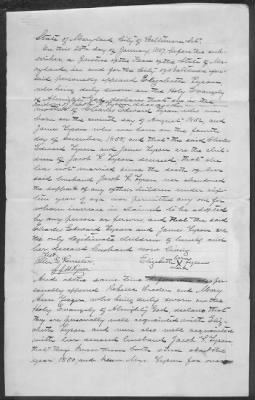 State of Maryland City of Baltimore Sct.
On this 25th day of January 1867, before the sub-
scriber, a Justice of the Peace of the State of Ma-
ryland, in and for the City of Baltimore afore
said personally appeared Elizabeth Tyson
who being duly sworn on the Holy Evangely
of Almighty God declares that she is the
mother of Charles Edward Tyson who was
born on the seventh day of August 1852, and
James Tyson who was born on the fourth
day of December 1858, and that the said Charles
Edward Tyson and James Tyson are the chil-
dren of Jacob L. Tyson deceased, that she
has not married since the death of her
said husband Jacob L. Tyson, nor abandoned
the support of any of their children under six-
teen years of age nor permitted any one for
whom increase is claimed, to be adopted
by any person or persons, and that the said
Charles Edward Tyson and James Tyson are
the only legitimate children of herself and
her deceased husband now living.
Test
Elizabeth X Tyson
mark
And at the same time
personally appeared Rebecca and Mary
Ann who being duly sworn on the
Holy Evangely of Almighty God, declare that
they are personally well acquainted with Eliz-
abeth Tyson and were also well acquainted
with her deceased husband Jacob L. Tyson
that they knew them both since about the
year 1850 and knew Mrs. Tyson for over